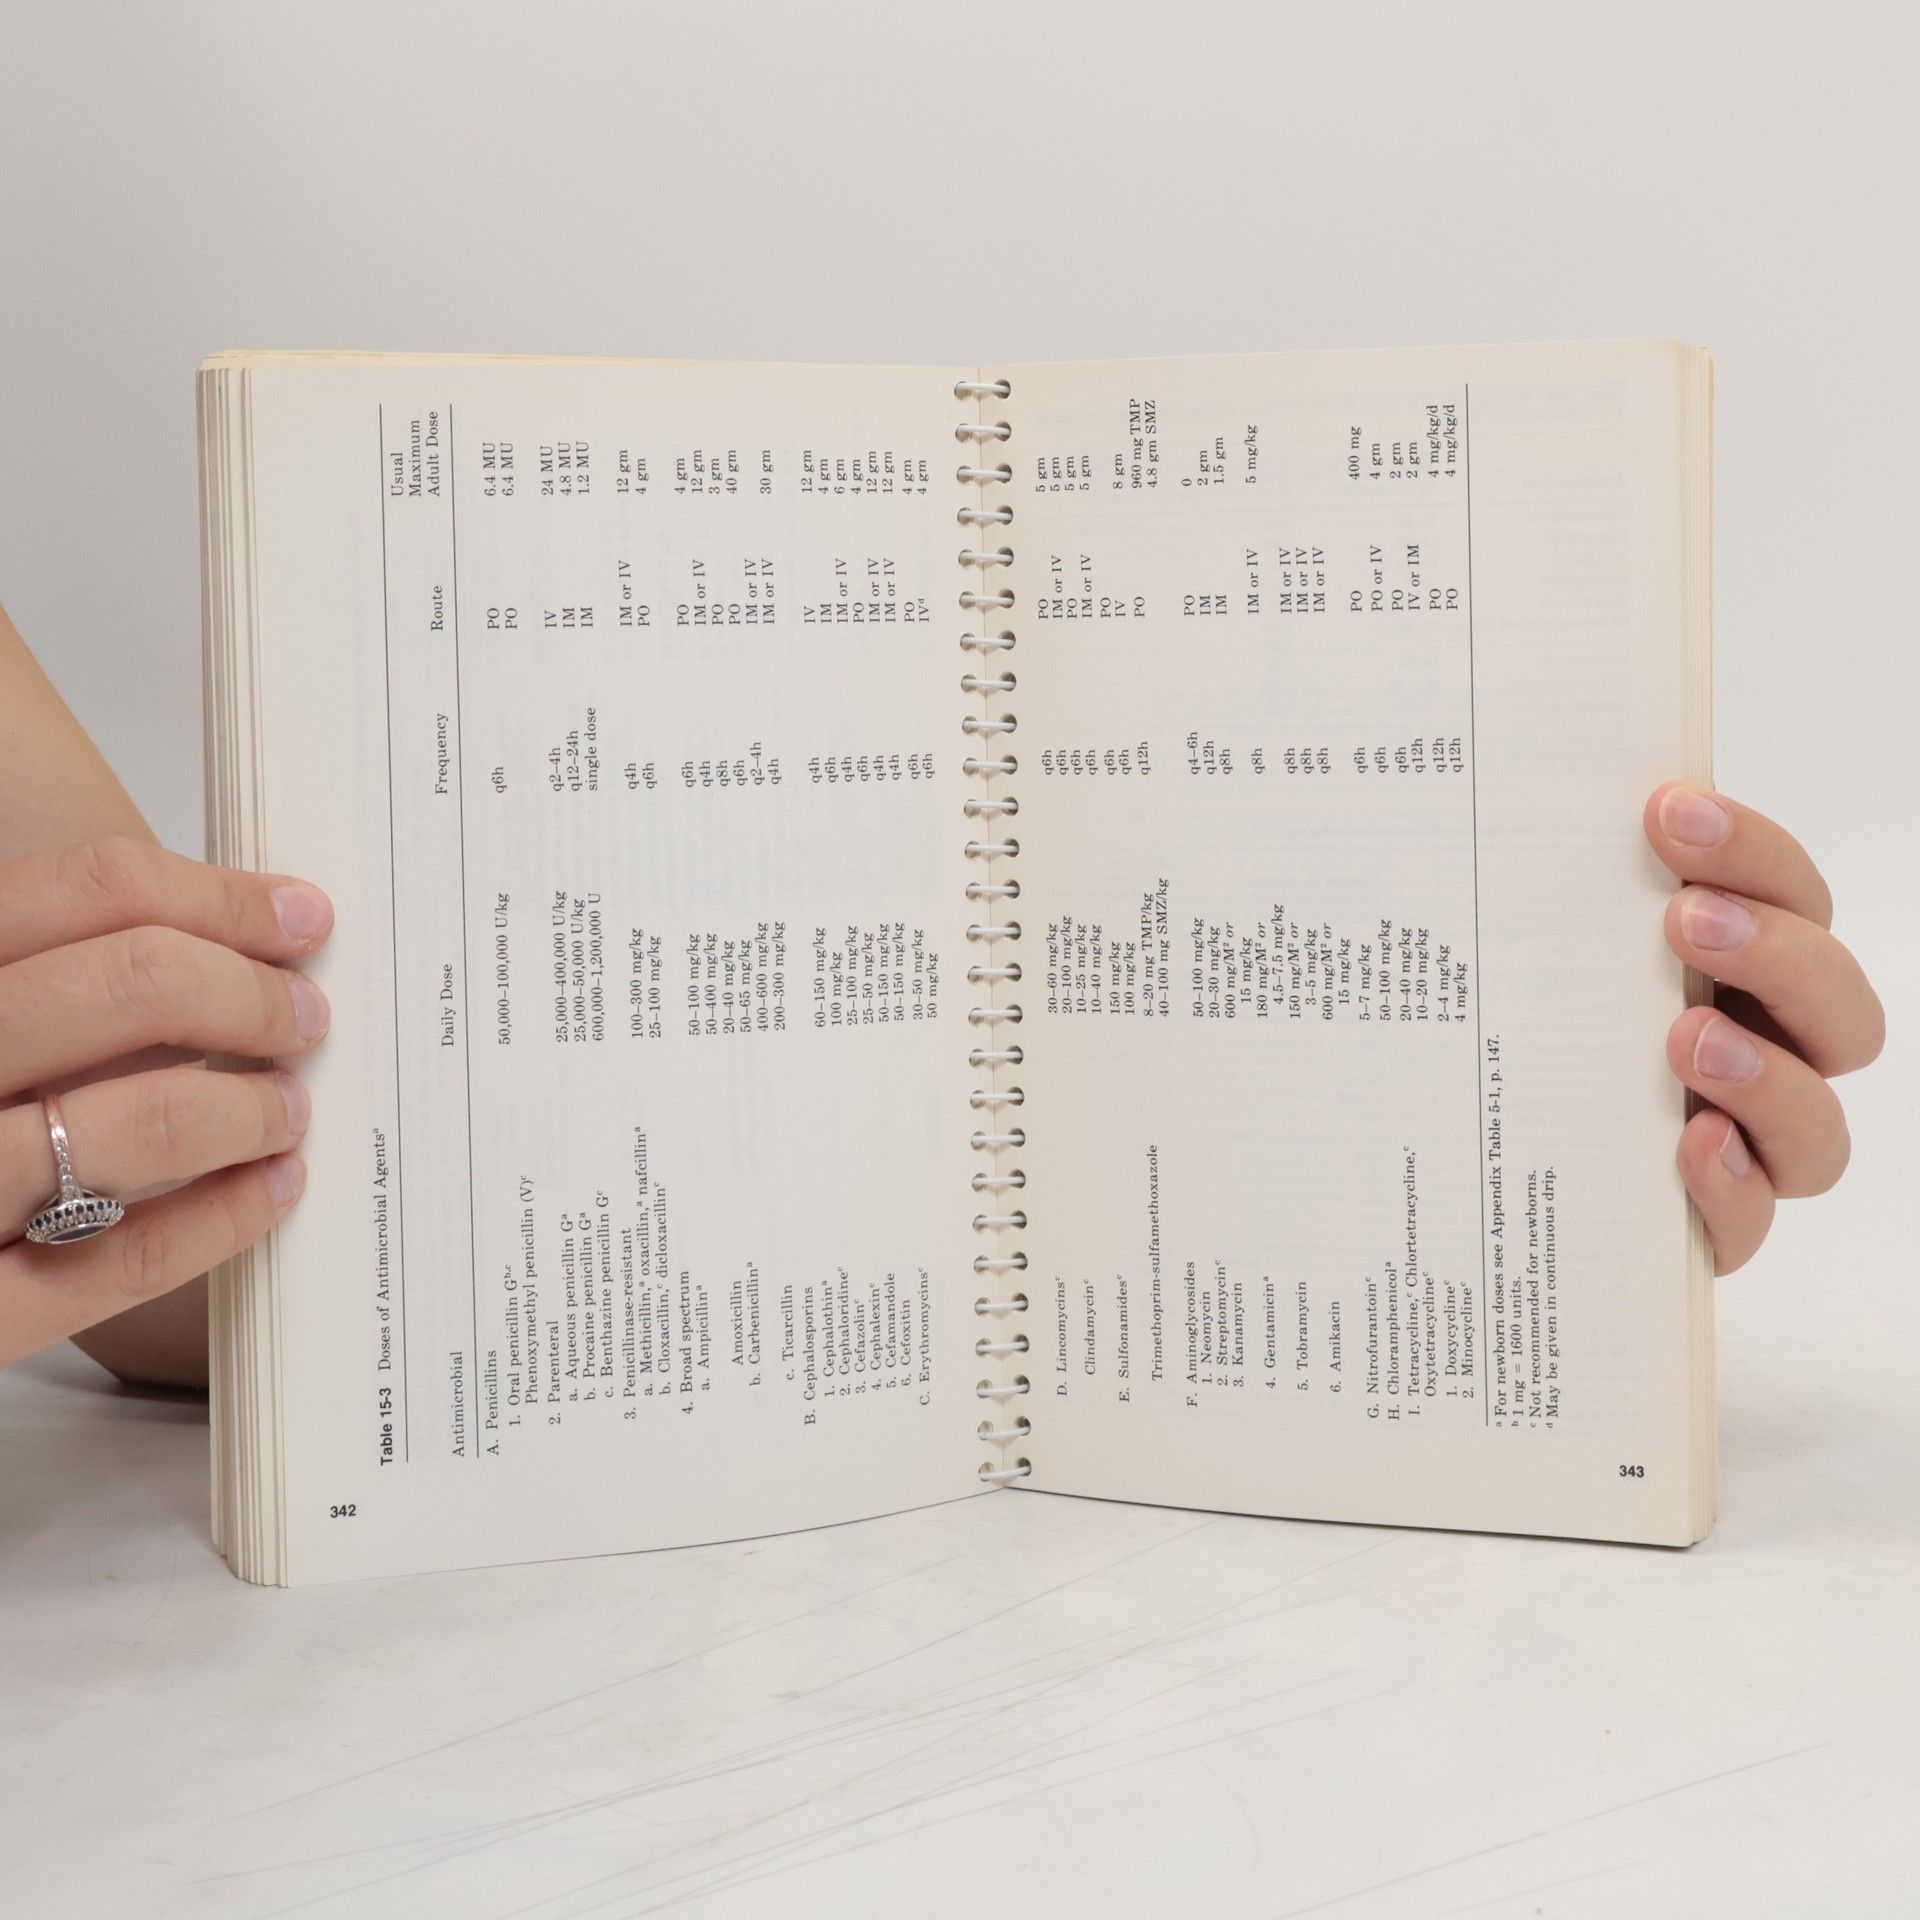 Table 15-3 Doses of Antimicrobial Agentsᵃ
Usual
Maximum
Antimicrobial Daily Dose Frequency Route Adult Dose
A. Penicillins
1. Oral penicillin Gᵇ,ᶜ 50,000–100,000 U/kg q6h PO 6.4 MU
Phenoxymethyl penicillin (V)ᶜ PO 6.4 MU
2. Parenteral
a. Aqueous penicillin Gᵃ 25,000–400,000 U/kg q2–4h IV 24 MU
b. Procaine penicillin Gᵃ 25,000–50,000 U/kg q12–24h IM 4.8 MU
c. Benthazine penicillin Gᶜ 600,000–1,200,000 U single dose IM 1.2 MU
3. Penicillinase-resistant
a. Methicillin,ᵃ oxacillin,ᵃ nafcillinᵃ 100–300 mg/kg q4h IM or IV 12 gm
b. Cloxacillin,ᶜ dicloxacillinᶜ 25–100 mg/kg q6h PO 4 gm
4. Broad spectrum
a. Ampicillinᵃ 50–100 mg/kg q6h PO 4 gm
50–400 mg/kg q4h IM or IV 12 gm
Amoxicillin 20–40 mg/kg q8h PO 3 gm
b. Carbenicillinᵃ 50–65 mg/kg q6h PO 40 gm
400–600 mg/kg q2–4h IM or IV
c. Ticarcillin 200–300 mg/kg q4h IM or IV 30 gm
B. Cephalosporins
1. Cephalothinᵃ 60–150 mg/kg q4h IV 12 gm
2. Cephaloridineᶜ 100 mg/kg q6h IM 4 gm
3. Cefazolinᶜ 25–100 mg/kg q4h IM or IV 6 gm
4. Cephalexinᶜ 25–50 mg/kg q6h PO 4 gm
5. Cefamandole 50–150 mg/kg q4h IM or IV 12 gm
6. Cefoxitin 50–150 mg/kg q4h IM or IV 12 gm
C. Erythromycinsᶜ 30–50 mg/kg q6h PO 4 gm
50 mg/kg q6h IVᵈ 4 gm
342
D. Lincomycinsᶜ 30–60 mg/kg q6h PO 5 gm
20–100 mg/kg q6h IM or IV 5 gm
Clindamycinᶜ 10–25 mg/kg q6h PO 5 gm
10–40 mg/kg q6h IM or IV 5 gm
E. Sulfonamidesᶜ 150 mg/kg q6h PO
100 mg/kg q6h IV 8 gm
Trimethoprim-sulfamethoxazole 8–20 mg TMP/kg q12h PO 960 mg TMP
40–100 mg SMZ/kg 4.8 gm SMZ
F. Aminoglycosides
1. Neomycin 50–100 mg/kg q4–6h PO 0
2. Streptomycinᶜ 20–30 mg/kg q12h IM 2 gm
3. Kanamycin 600 mg/M² or q8h IM 1.5 gm
15 mg/kg
4. Gentamicinᵃ 180 mg/M² or q8h IM or IV 5 mg/kg
4.5–7.5 mg/kg
5. Tobramycin 150 mg/M² or q8h IM or IV
3–5 mg/kg q8h IM or IV
6. Amikacin 600 mg/M² or q8h IM or IV
15 mg/kg
G. Nitrofurantoinᶜ 5–7 mg/kg q6h PO 400 mg
H. Chloramphenicolᵃ 50–100 mg/kg q6h PO or IV 4 gm
I. Tetracycline,ᶜ Chlortetracycline,ᶜ 20–40 mg/kg q6h PO 2 gm
Oxytetracyclineᶜ 10–20 mg/kg q12h IV or IM 2 gm
1. Doxycyclineᶜ 2–4 mg/kg q12h PO 4 mg/kg/d
2. Minocyclineᶜ 4 mg/kg q12h PO 4 mg/kg/d
ᵃ For newborn doses see Appendix Table 5-1, p. 147.
ᵇ 1 mg = 1600 units.
ᶜ Not recommended for newborns.
ᵈ May be given in continuous drip.
343